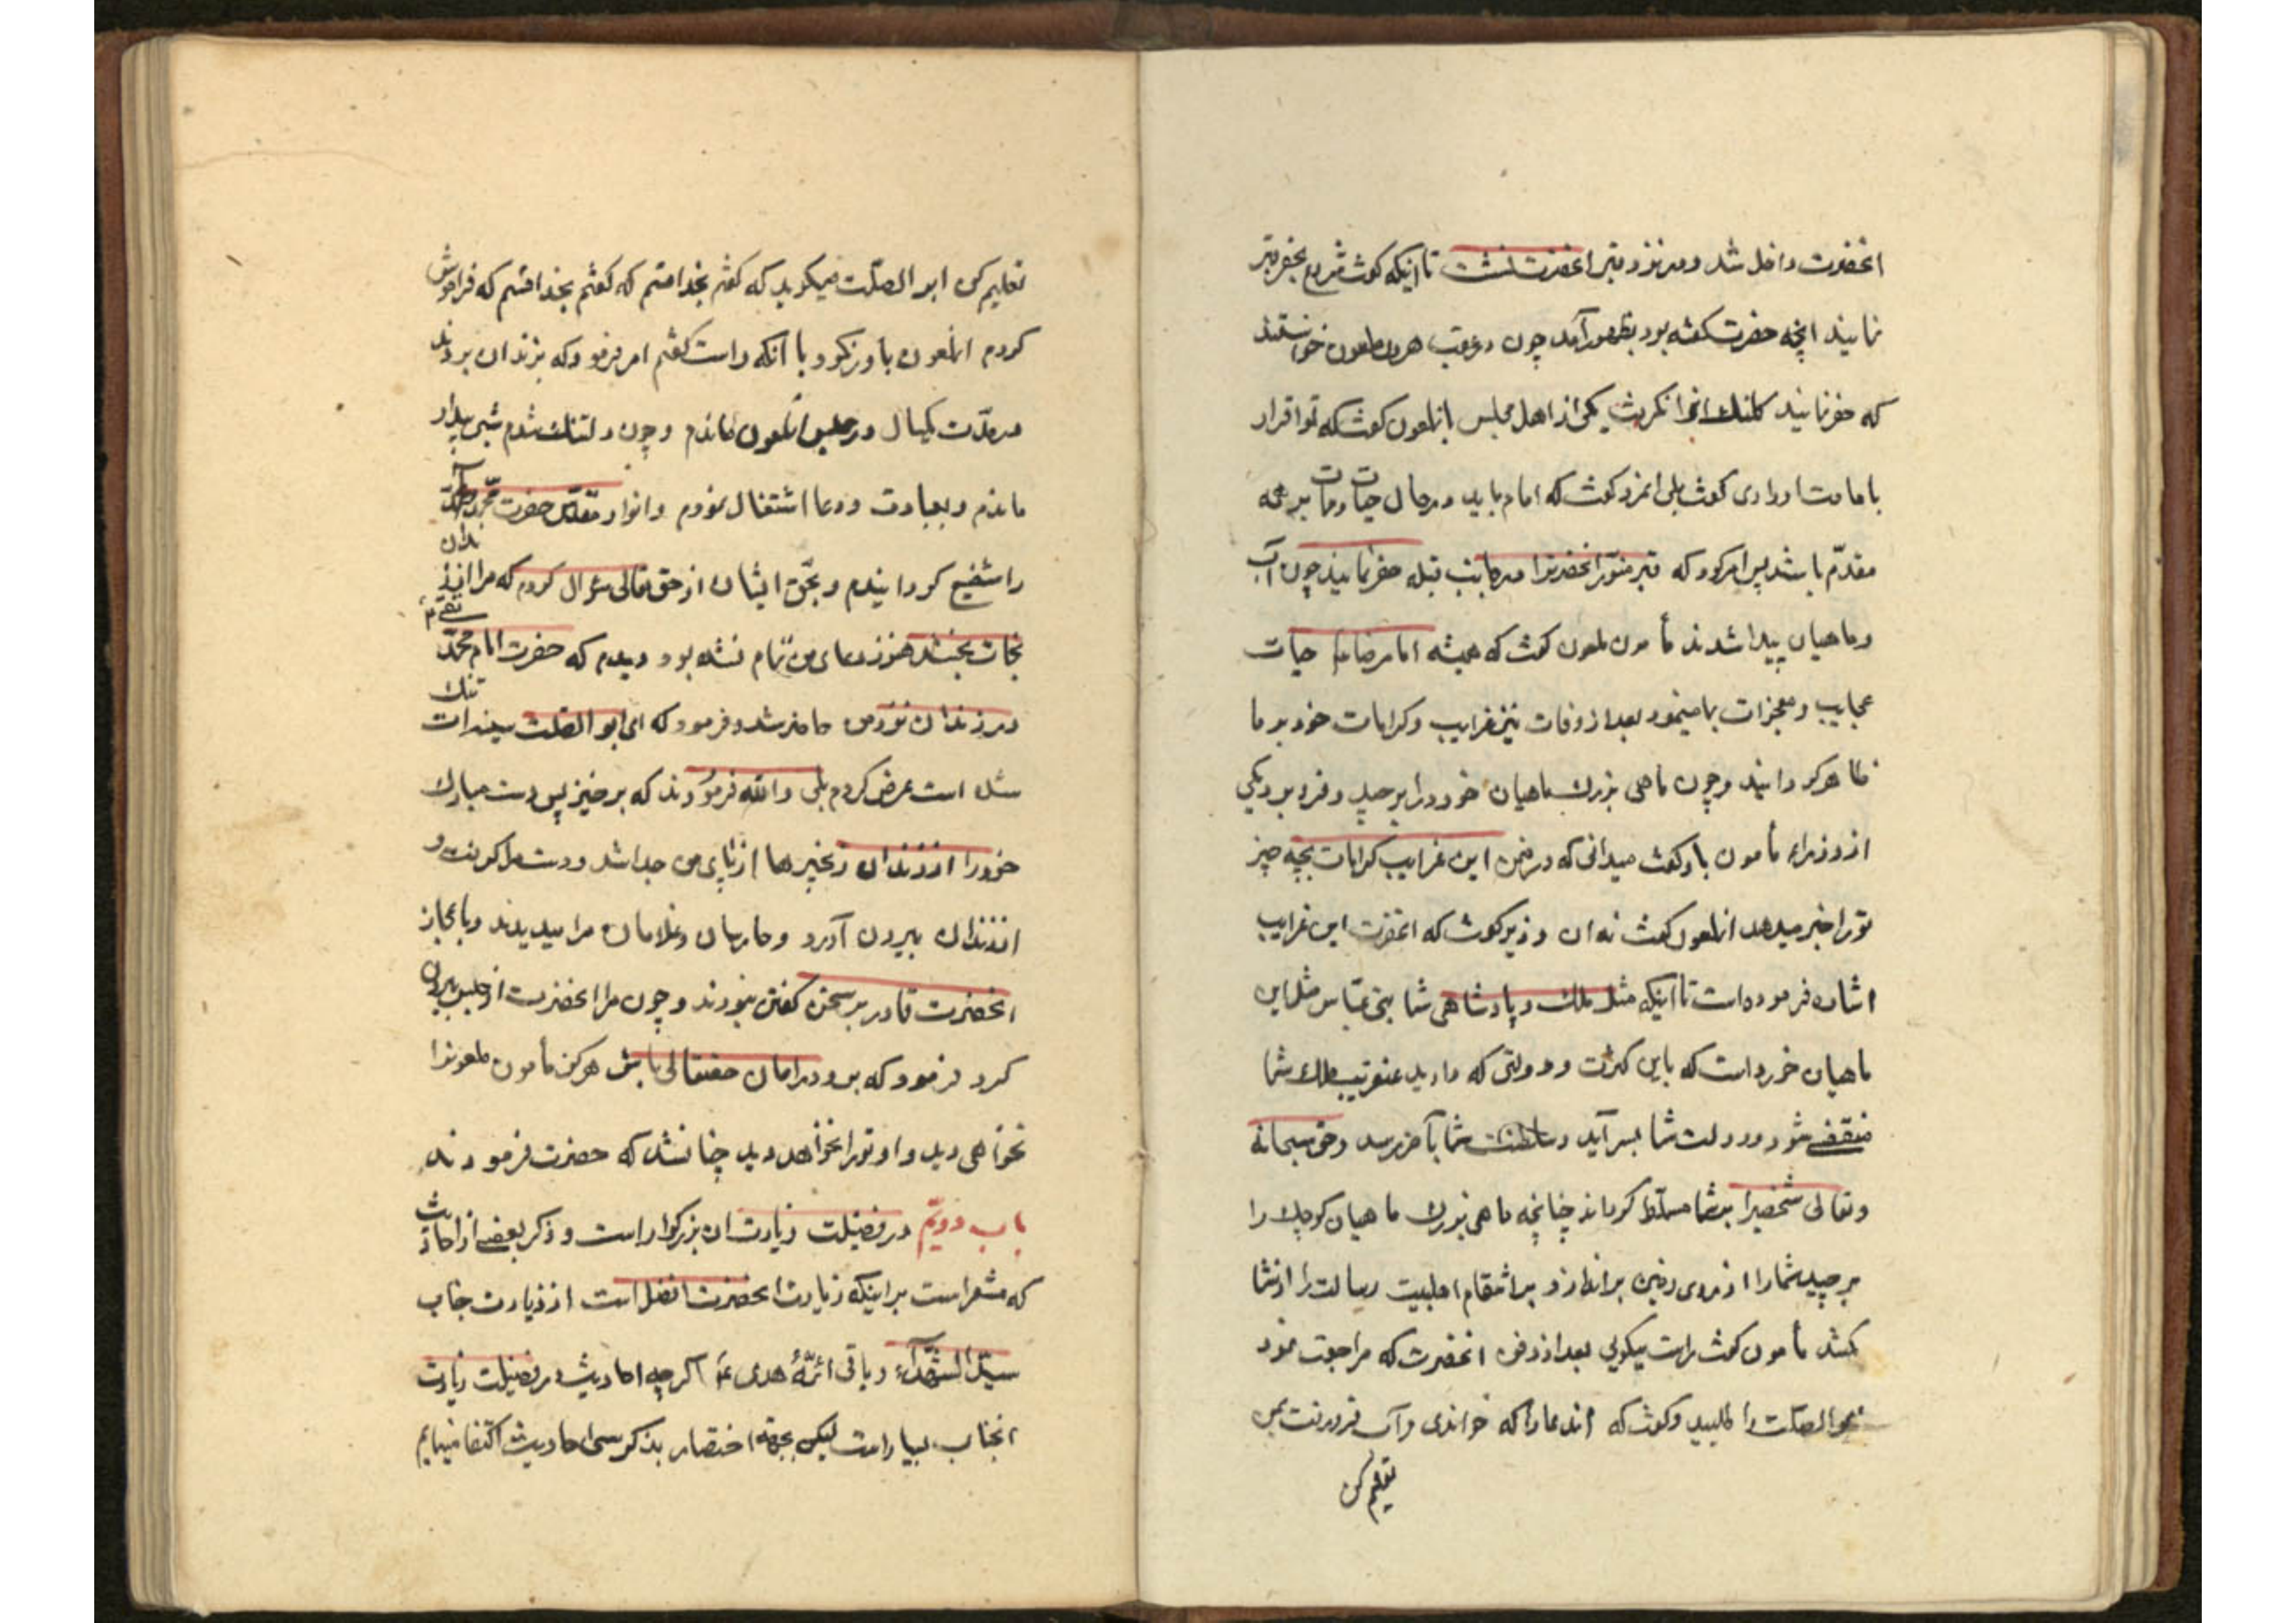 انحضرت داخل شد و در نزد قبر انحضرت نشست تا اینکه گفت شروع بحفر قبر
نمایند انچه حضرت گفته بود بظهور آمد چون در عقب هرون ملعون خواستند
که حفر نمایند کلنك انرا نگرفت یکی از اهل مجلس بانملعون گفت که تو اقرار
بامامت او داری گفت بلی انمرد گفت که امام باید در حال حیات و ممات بر همه
مقدّم باشد پس امر کرد که قبر منوّر انحضرترا در جانب قبله حفر نمایند چون آب
و ماهیان پیدا شدند مأمون ملعون گفت که همیشه امام رضا در حیات
عجایب و معجزات بما مینمود بعد از وفات نیز غرایب و کرامات خود بر ما
ظاهر گردانید و چون ماهی بزرك ماهیان خورد را برچید و فرو برد یکی
از وزراء مأمون باو گفت میدانی که در ضمن این غرایب کرامات بچه چیز
تو را خبر میدهد انملعون گفت نه ان وزیر گفت که انحضرت این غرایب
اشاره فرموده است تا اینکه مثل ملك و پادشاهی شما بنی عبّاس مثل این
ماهیان خورد است که باین کثرت و دولتی که دارید عنقریب ملك شما
منقضی شود و دولت شما بسر آید و سلطنت شما بآخر رسد و حق سبحانه
و تعالی شخصیرا بشما مسلّط گرداند چنانچه ماهی بزرك ماهیان کوچك را
برچید شما را از روی زمین براندازد و بر انتقام اهلبیت رسالت را از شما
کشد مأمون گفت راست میگویی بعد از دفن انحضرت که مراجعت نمود
ابو الصلت را طلبید و گفت که اندعا را که خواندی و آب فرو رفت بمن
تعلیم کن
تعلیم کن ابو الصّلت میگوید که گفتم بخدا قسم که گفتم بخدا قسم که فراموش
کردم انملعون باور نکرد و با آنکه راست گفتم امر فرمود که بزندان بردند
در مدّت یکسال در حبس انملعون ماندم و چون دلتنك شدم شبی بیدار
ماندم و بعبادت و دعا اشتغال نمودم و انوار مقدّس حضرت محمّد و آل محمّد
را شفیع گردانیدم و بحقّ ایشان از حق تعالی سؤال کردم که مرا از زندان
نجات بخشد هنوز دعای من تمام نشده بود دیدم که حضرت امام محمّد تقی ع
در زندان نزد من حاضر شد و فرمود که ای ابو الصّلت سینه ات تنك
شده است عرض کردم بلی والله فرمودند که برخیز پس دست مبارك
خود را از زندان زنجیرها از پای من جدا شد و دست مرا گرفت و
از زندان بیرون آورد و حارسان و غلامان مرا میدیدند و باعجاز
انحضرت قادر بر سخن گفتن نبودند و چون مرا انحضرت از حبس بیرون
کرد فرمود که برو در امان حقتعالی باش هرگز مأمون ملعونرا
نخواهی دید و او تو را نخواهد دید چنان شد که حضرت فرمودند
باب دویّم در فضیلت زیارت ان بزرگوار است و ذکر بعضی از احادیث
که مشعر است بر اینکه زیارت انحضرت افضل است از زیارت جناب
سیّد الشّهداء و باقی ائمّهٔ هدی ع اگرچه احادیث در فضیلت زیارت
انجناب بسیار است لیکن بجهة اختصار بذکر سی احادیث اکتفا مینمایم